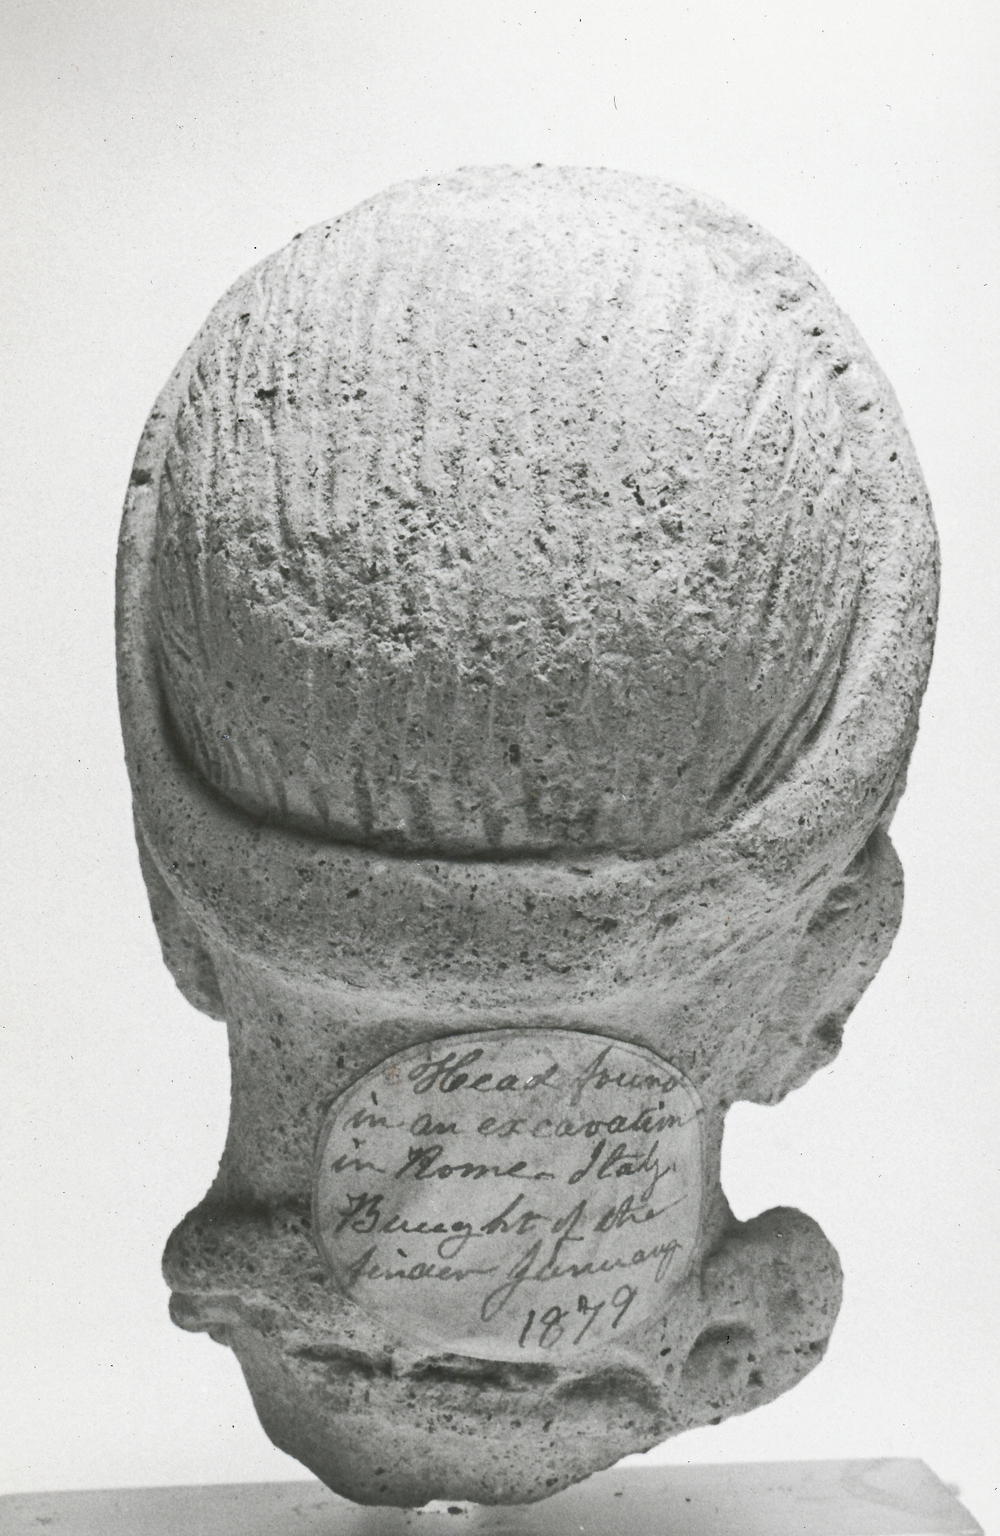 Head found
in an excavation
in Rome - Italy.
Bought of the
finder January
1879